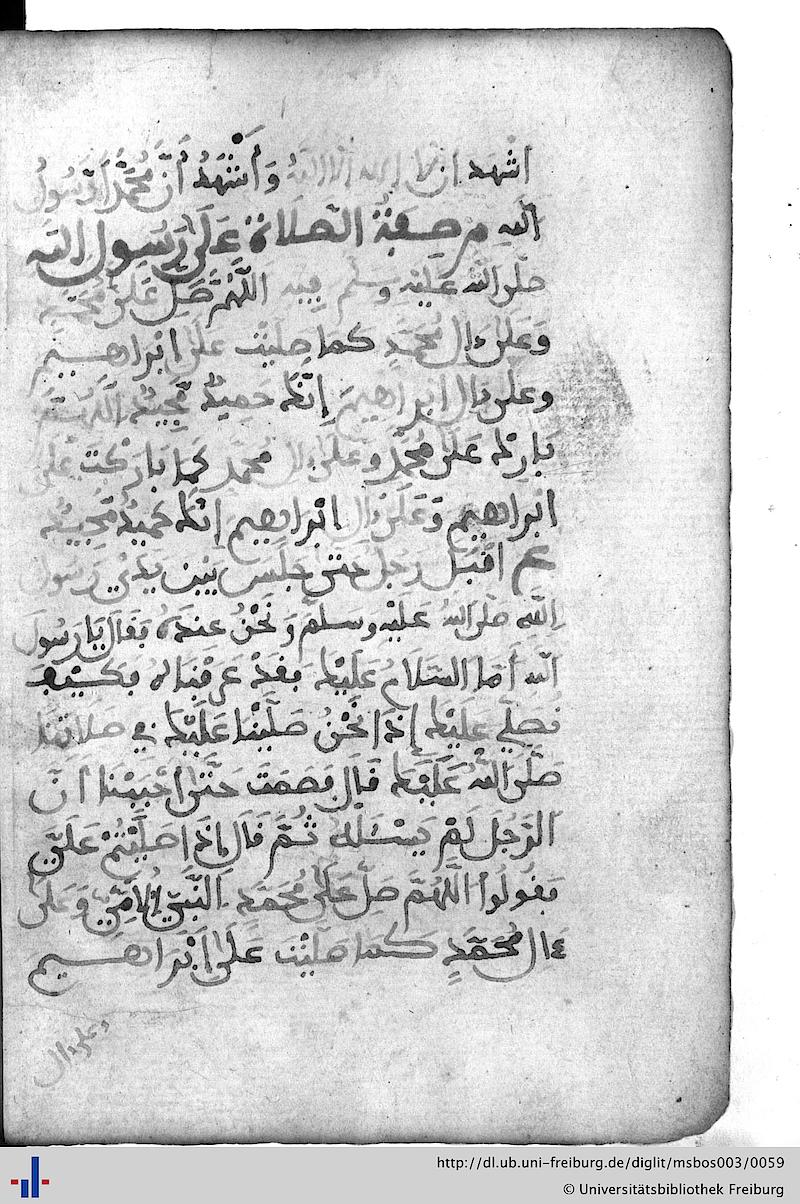 اشهد ان لا اله الا الله وَأَشْهَدُ أَنَّ مُحَمَّداً رَسُولُ
الله من صِفَةِ الصَّلَاةِ عَلَى رَسُولِ الله
صَلَّى اللهُ عَلَيْهِ وَسَلَّم فيه اللَّهُمَّ صَلِّ عَلَى مُحَمَّدٍ
وَعَلَىٰ ءالِ مُحَمَّدٍ كَمَا صَلَّيْتَ عَلَى ابْرَاهِيمَ
وعلى ءال ابراهيمَ إِنَّكَ حَمِيدٌ مَّجِيدٌ اللَّهُمَّ
بَارِكْ عَلَى مُحَمَّدٍ وَعَلَى ءالِ مُحَمَّدٍ كَمَا بَارَكْتَ عَلَى
ابْرَاهِيمَ وَعَلَى ءال ابْرَاهِيم إِنَّكَ حَمِيدٌ مَّجِيدٌ
اقْبَلَ رَجُلٌ حَتَّى جَلَسَ بَيْنَ يَدَيْ رَسُولِ
اللهِ صَلَّى اللهُ عَلَيْهِ وَسَلَّمَ وَنَحْنُ عِنْدَهُ فَقَالَ يَا رَسُولَ
الله أَمَّا السَّلَامُ عَلَيْكَ فَقَدْ عَرَفْنَاهُ فَكَيْفَ
نُصَلِّي عَلَيْكَ إِذَا نَحْنُ صَلَّيْنَا عَلَيْكَ فِي صَلَاتِنَا
صَلَّى اللهُ عَلَيْكَ قَالَ فَصَمَتَ حَتَّى أَحْبَبْنَا أَنَّ
الرَّجُلَ لَمْ يَسْئَلْهُ ثُمَّ قَالَ إِذَا صَلَّيْتُمْ عَلَيَّ
فَقُولُوا اللَّهُمَّ صَلِّ عَلَى مُحَمَّدٍ النَّبِيِّ الْأُمِّيِّ وَعَلَى
ءَالِ مُحَمَّدٍ كَمَا صَلَّيْتَ عَلَى إِبْرَاهِيمَ
وعلى ءال
http://dl.ub.uni-freiburg.de/diglit/msbos003/0059
© Universitätsbibliothek Freiburg